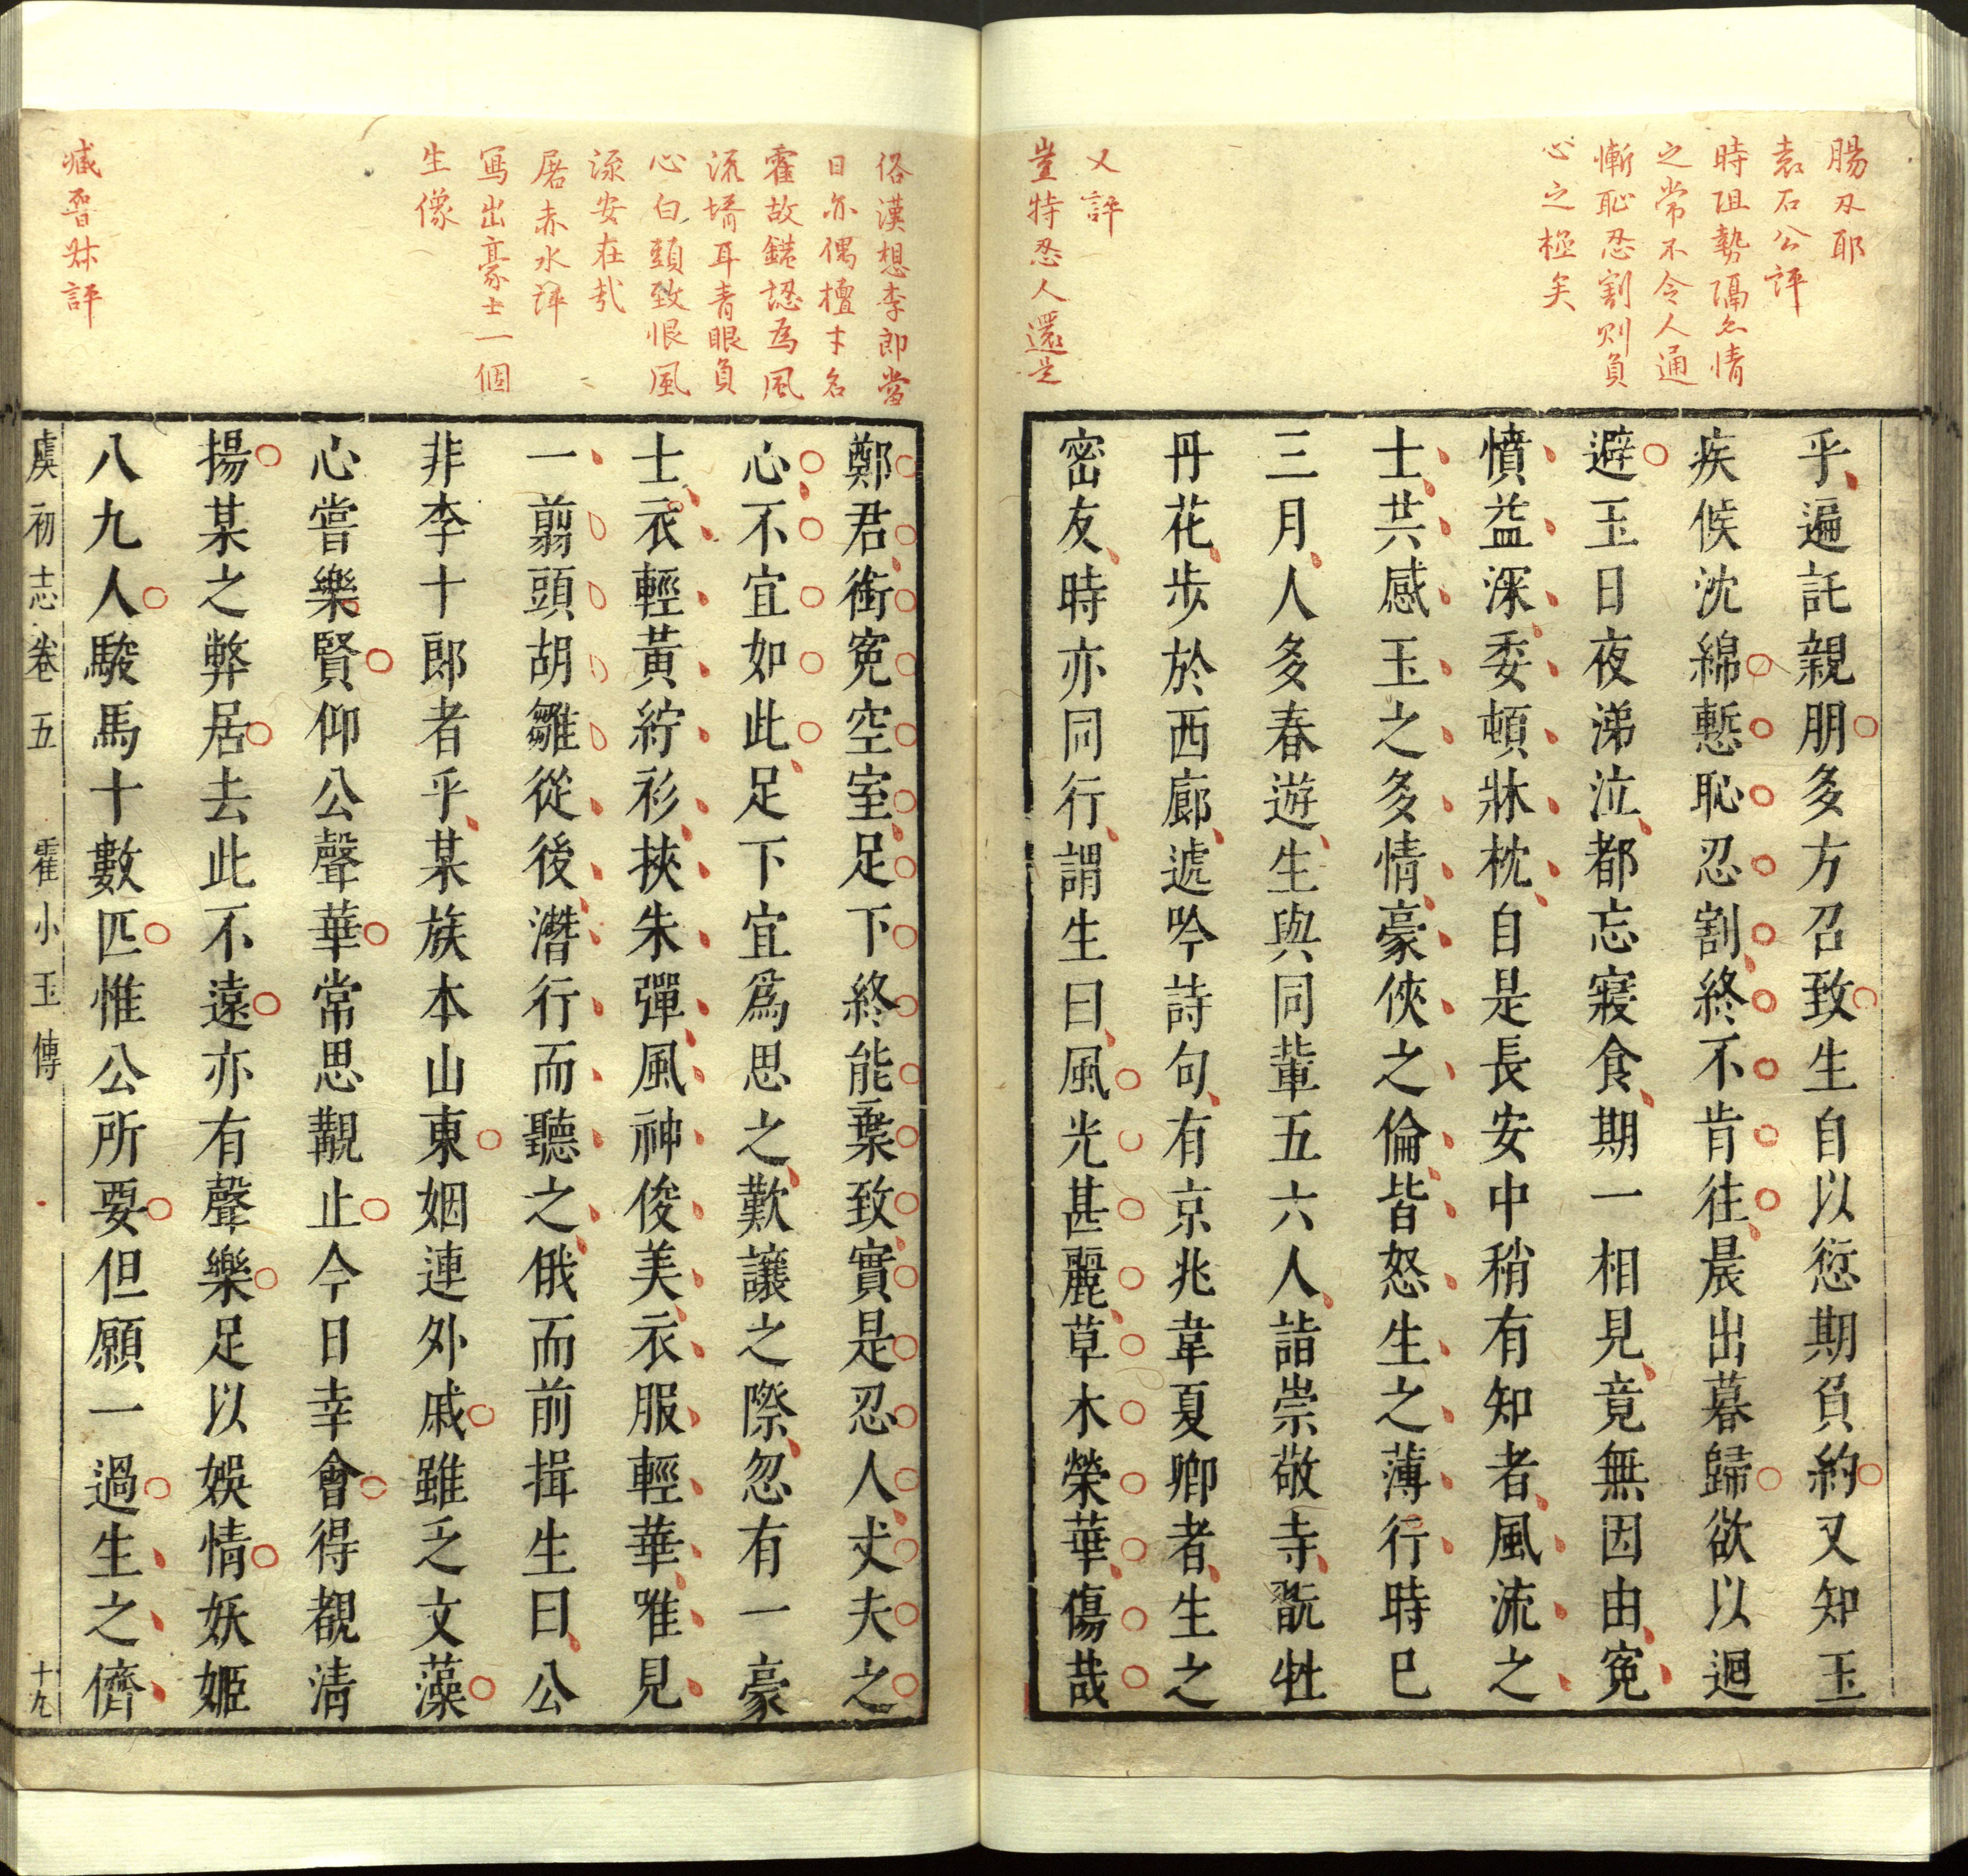 腸刃耶
袁石公評
時阻勢隔亦情
之常不令人通
慚恥忍割則負
心之極矣
又評
豈特忍人還是
乎遍託親朋多方召致生自以愆期負約又知玉
疾候沈綿慙恥忍割終不肯往晨出暮歸欲以迴
避玉日夜涕泣都忘寢食期一相見竟無因由冤
憤益深委頓牀枕自是長安中稍有知者風流之
士共感玉之多情豪俠之倫皆怒生之薄行時已
三月人多春遊生與同輩五六人詣崇敬寺翫牡
丹花步於西廊遞吟詩句有京兆韋夏卿者生之
密友時亦同行謂生曰風光甚麗草木榮華傷哉
俗漢想李郎當
日亦偶檀才名
霍故錯認為風
流壻耳青眼負
心白頭致恨風
流安在哉
屠赤水評
寫出豪士一個
生像
臧晉叔評
鄭君銜冤空室足下終能棄致實是忍人丈夫之
心不宜如此足下宜爲思之歎讓之際忽有一豪
士衣輕黃紵衫挾朱彈風神俊美衣服輕華唯見
一翦頭胡雛從後潛行而聽之俄而前揖生曰公
非李十郎者乎某族本山東姻連外戚雖乏文藻
心嘗樂賢仰公聲華常思覯止今日幸會得覩清
揚某之弊居去此不遠亦有聲樂足以娛情妖姬
八九人駿馬十數匹惟公所要但願一過生之儕
虞初志卷五 霍小玉傳 十九